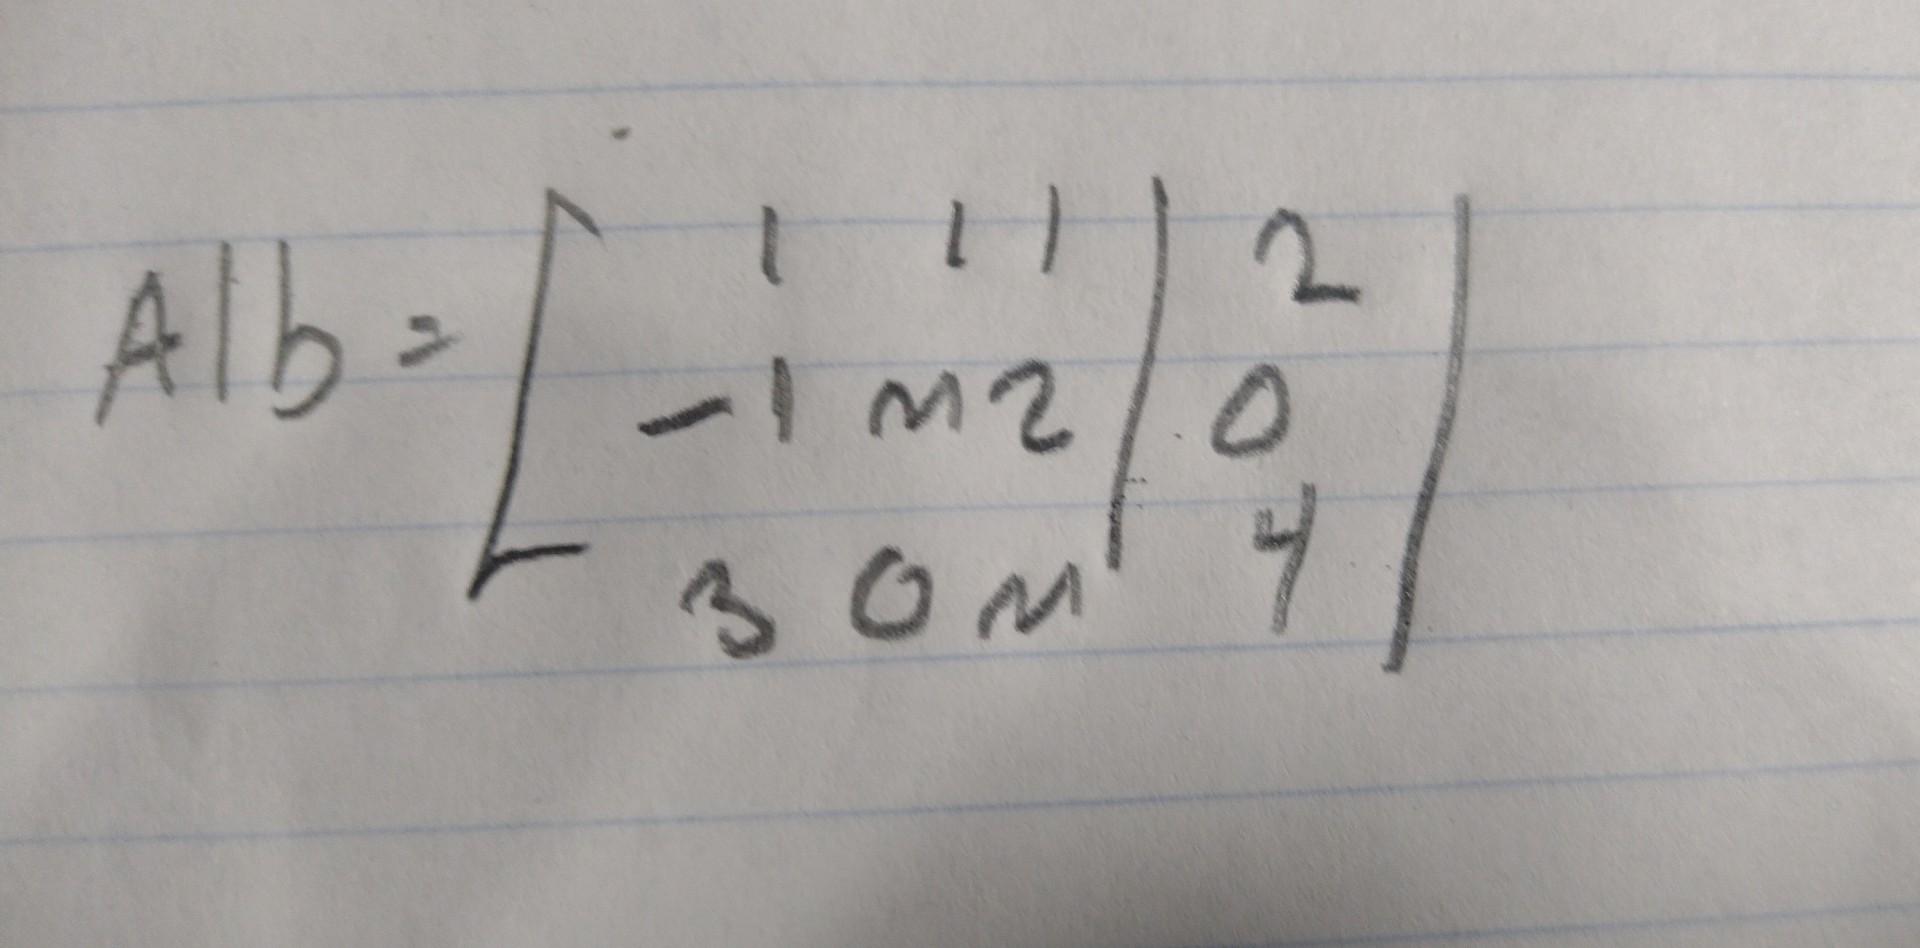 A|b = [ 1 1 1 | 2 |
-1 m 2 | 0
3 0 m | 4